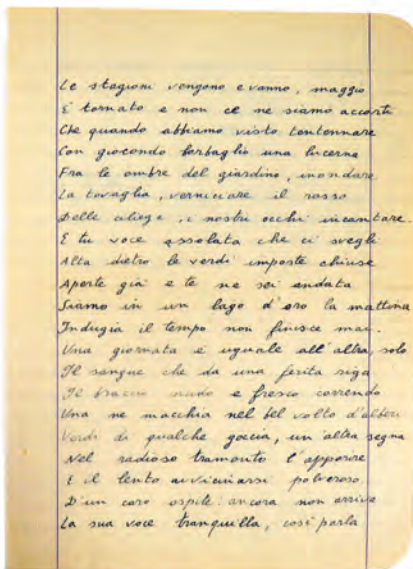 Le stagioni vengono e vanno, maggio
È tornato e non ce ne siamo accorti
Che quando abbiamo visto tentennare
Con giocondo barbaglio una lucerna
Fra le ombre del giardino, inondare
La tovaglia, verniciare il rosso
Delle ciliege, i nostri occhi incantare.
E tu voce assolata che ci svegli
Alta dietro le verdi imposte chiuse
Aperte già e te ne sei andata
Siamo in un lago d'oro la mattina
Indugia il tempo non finisce mai.
Una giornata è uguale all'altra, solo
Il sangue che da una ferita riga
Il braccio nudo e fresco correndo
Una ne macchia nel bel volto d'alberi
Verdi di qualche goccia, un'altra segna
Nel radioso tramonto l'apparire
E il lento avvicinarsi polveroso
D'un caro ospite: ancora non arriva
La sua voce tranquilla, così parla